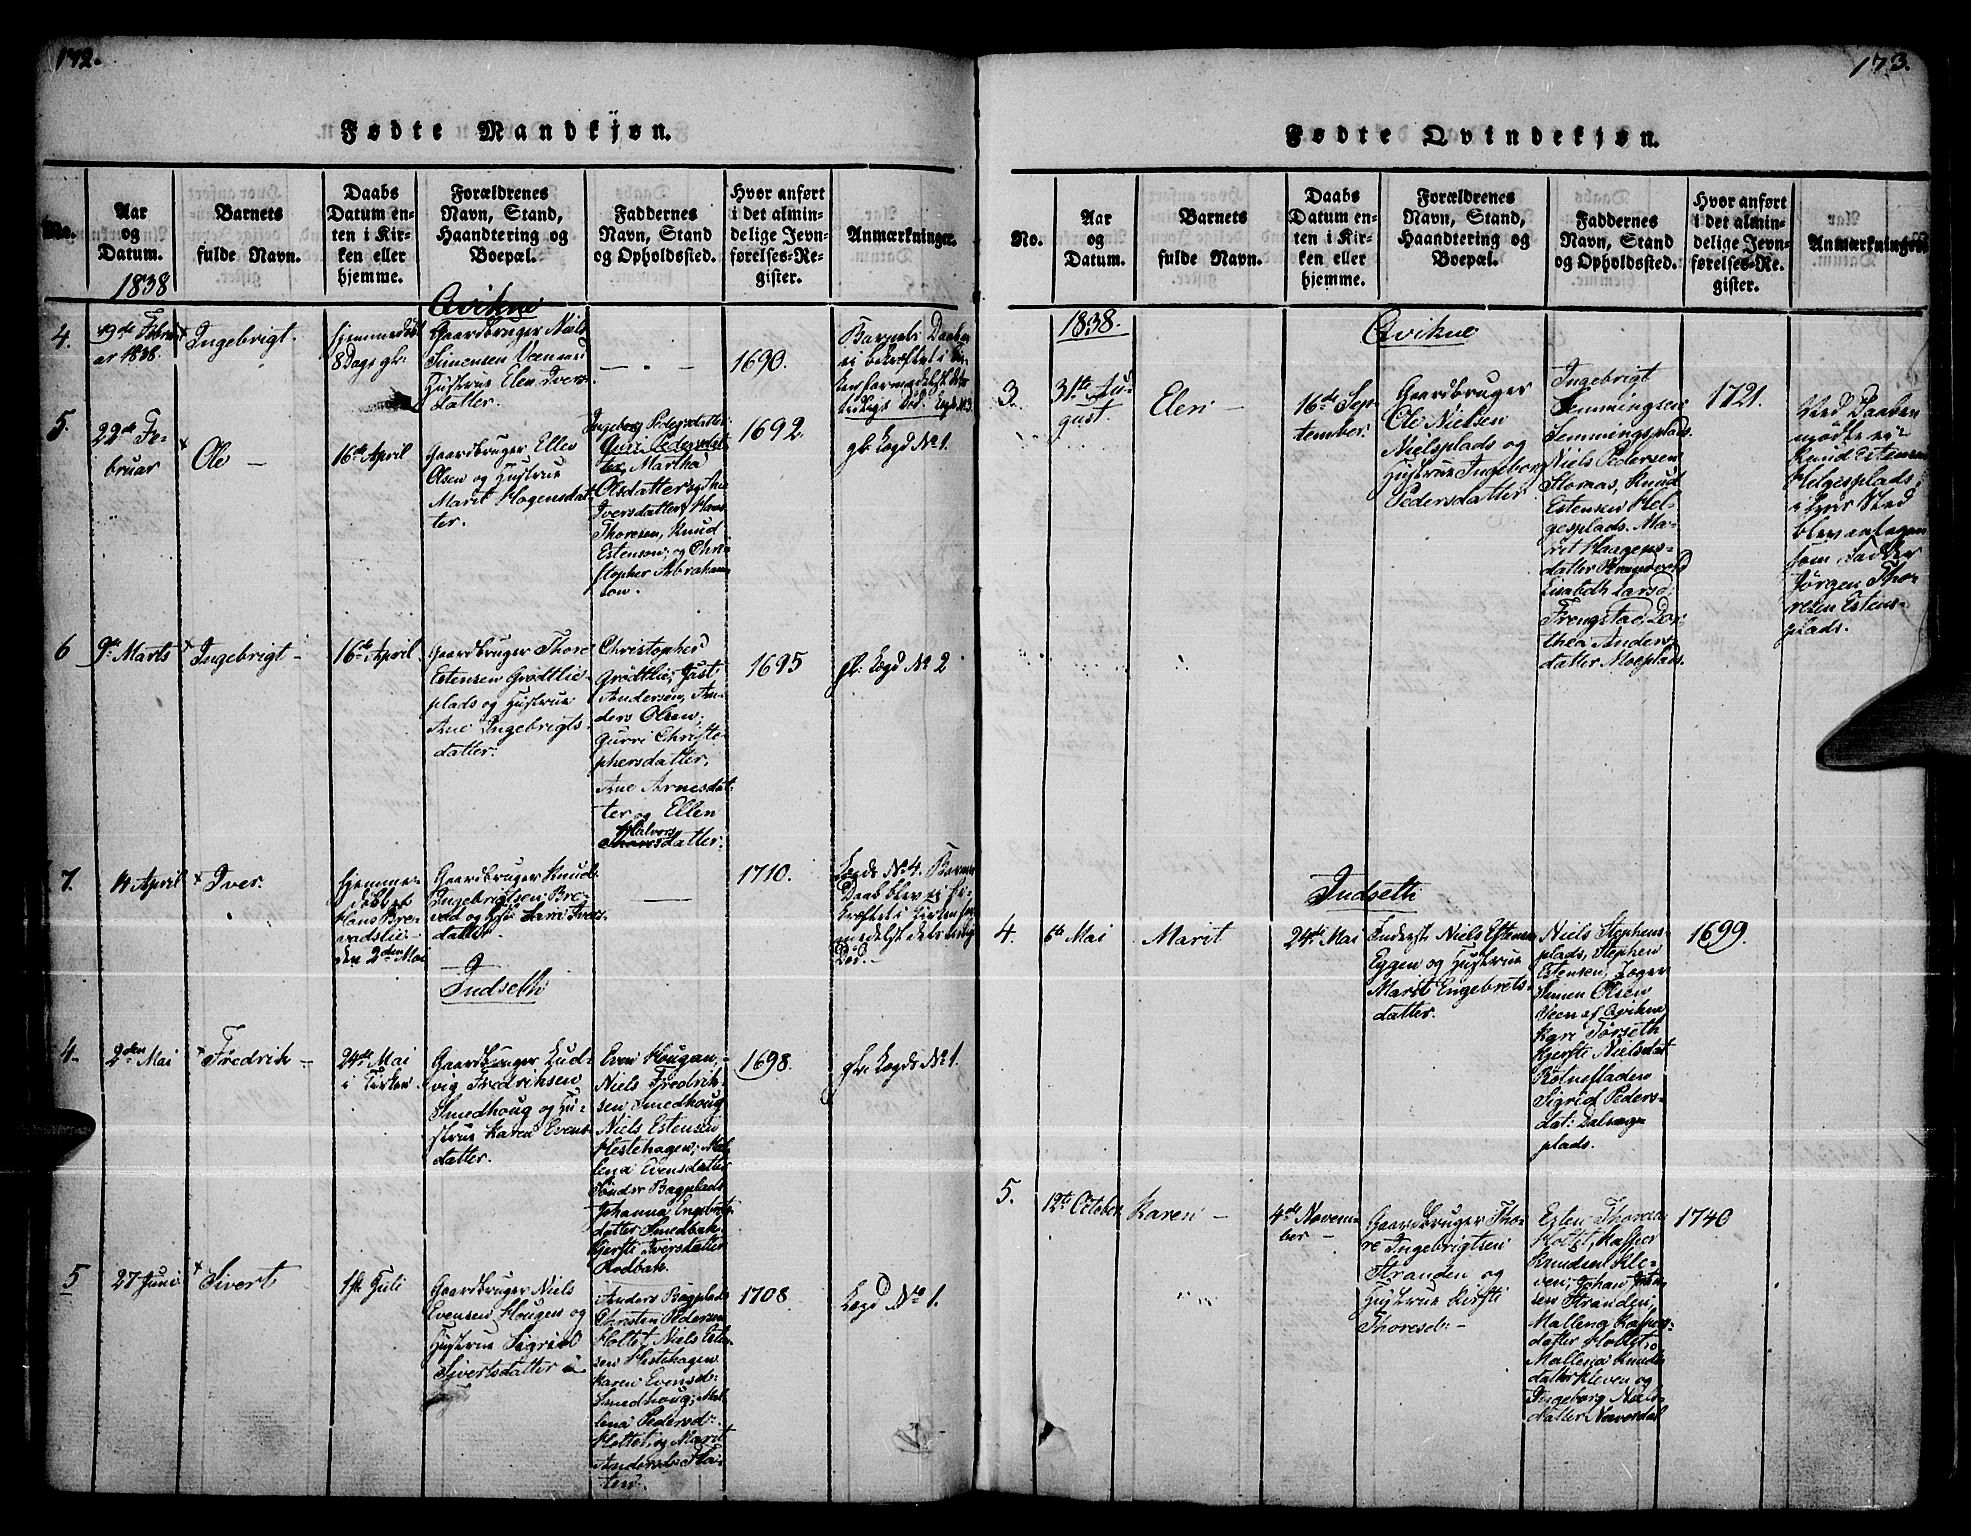 172.
Fødte Mandkjøn.
No.
Aar
og
Datum.
1838
Barnets
fulde Navn.
Daabs
Datum en-
ten i Kir-
ken eller
hjemme.
Forældrenes
Navn, Stand,
Haandtering og
Boepæl.
Faddernes
Navn, Stand
og Opholdssted.
Hvor anført
i det almin-
delige Jevn-
førelses-Re-
gister.
Anmærkninger.
Qvikne
4.
19de Febru-
ar 1838
Ingebrigt.
hjemmedøbt
8 Dage gl.
Gaardbruger Niels
Simensen Veen
Hustrue Elen Ivers-
datter.
— . —
1690.
Barnets Daab
ei bekræftet i Kir-
ken formedelst dets
tidlige Død.
5.
22de Fe-
bruar
Ole —
16de April
Gaardbruger Ellev
Olsen og Hustrue
Marit Hogensdat-
ter.
Ingeborg Pedersdatter
Guri Pedersdat-
ter, Martha
Olsdatter
Iversdatter, Hans
Thoresen, Knud
Estensen, og Chri-
stopher Abraham-
sen.
1692.
gl. Logd No 1.
6
9de Marts
Ingebrigt —
16de April
Gaardbruger Thore
Estensen Grødtlie-
plads og Hustrue
Ane Ingebrigts-
datter.
Christopher
Grødtlie, Just
Andersen, An-
ders Olsen,
Gurri Christo-
phersdatter,
Ane Arnesdat-
ter og Ellen
Halvors
Thoresdatter.
1695
gl. Logd No 2
7.
14 April
Iver.
hjemme-
døbt af
Hans Bre-
vadslie —
den 2den Mai
Gaardbruger Knud
Ingebrigtsen Bre-
vad og Hstr Kari Ivers-
datter
—
1710.
Logd. No 4. Barnets
Daab blev ei be-
kræftet i Kirken for-
medelst dets tidlige
Død. —
Indseth
4.
2den Mai
Fredrik —
24de Mai
i Kirken
Gaardbruger Lud-
vig Fredriksen
Smedhoug og Hu-
strue Karen Evens-
datter.
Even Hougan,
Niels Fredrik-
sen Smedhoug
Niels Estensen
Hestehagen; Mal-
lena Evensdatter
Sønder Bagplads
Johanna Engebrets-
datter Smedbak
Kjersti Iversdatter
Rodbak.
1698.
gl. Logd No 1.
5
27 Juni
Sivert
1ste Juli
Gaardbruger Niels
Evensen Hougen og
Hustrue Sigrid
Sivertsdatter
Anders Bagplads
Christen Pedersen
Holtet, Niels Esten-
sen Hestehagen
Karen Evensd:
Smedhoug, Mal-
lena Pedersd:
Holtet, og Marit
Andersd: Flo-
ten.
1708
Logd No 1.
173.
Fødte Qvindekjøn.
No.
Aar
og
Datum.
Barnets
fulde Navn.
Daabs
Datum en-
ten i Kir-
ken eller
hjemme.
Forældrenes
Navn, Stand,
Haandtering og
Boepæl.
Faddernes
Navn, Stand
og Opholdssted.
Hvor anført
i det almin-
delige Jevn-
førelses-Re-
gister.
Anmærkninger.
1838.
Qvikne
3.
31te Au-
gust
Elen —
16de Sep-
tember.
Gaardbruger
Ole Nielsen
Nielsplads og
Hustrue Ingeborg
Pedersdatter
Ingebrigt
Semmingsen
Semmingsplads.
Niels Pedersen
Stomas, Knud
Estensen Hel-
gesplads. Ma-
rit Haagens-
datter
Lisabeth Larsd:
Frengstad, Do-
thea Anders-
datter Moeplads.
1721.
Ved Daaben
mødte ei
Knud Estensen
Helgesplads,
i hvis Sted
blev antagen
som Fadder
Jørgen Tho-
resen Estens-
plads.
Indseth
4.
6te Mai
Marit
24de Mai
Inderst Niels Estensen
Eggen og Hustrue
Marit Engebrets-
datter.
Niels Stephens-
plads, Stephen
Estensen,
Simen Olsen
Veen af Qvikne
Kari Tørseth
Kjersti Nielsdat
Rotnefladen
Sigrid Peders-
dat: Dalvægs-
plads.
1699.
5.
12te October
Karen —
4de Novem-
ber —
Gaardbruger Tho-
re Ingebrigtsen
Stranden og
Hustrue Kirsti
Thoresd: —
Esten Thoresen
Holtet, Kasper
Knudsen Kle-
ven, Johan
sen Stranden,
Malleng Kaspers-
datter Holtet,
Mallena Knuds-
datter Kleven og
Ingeborg Niels-
datter Naverdal
1740